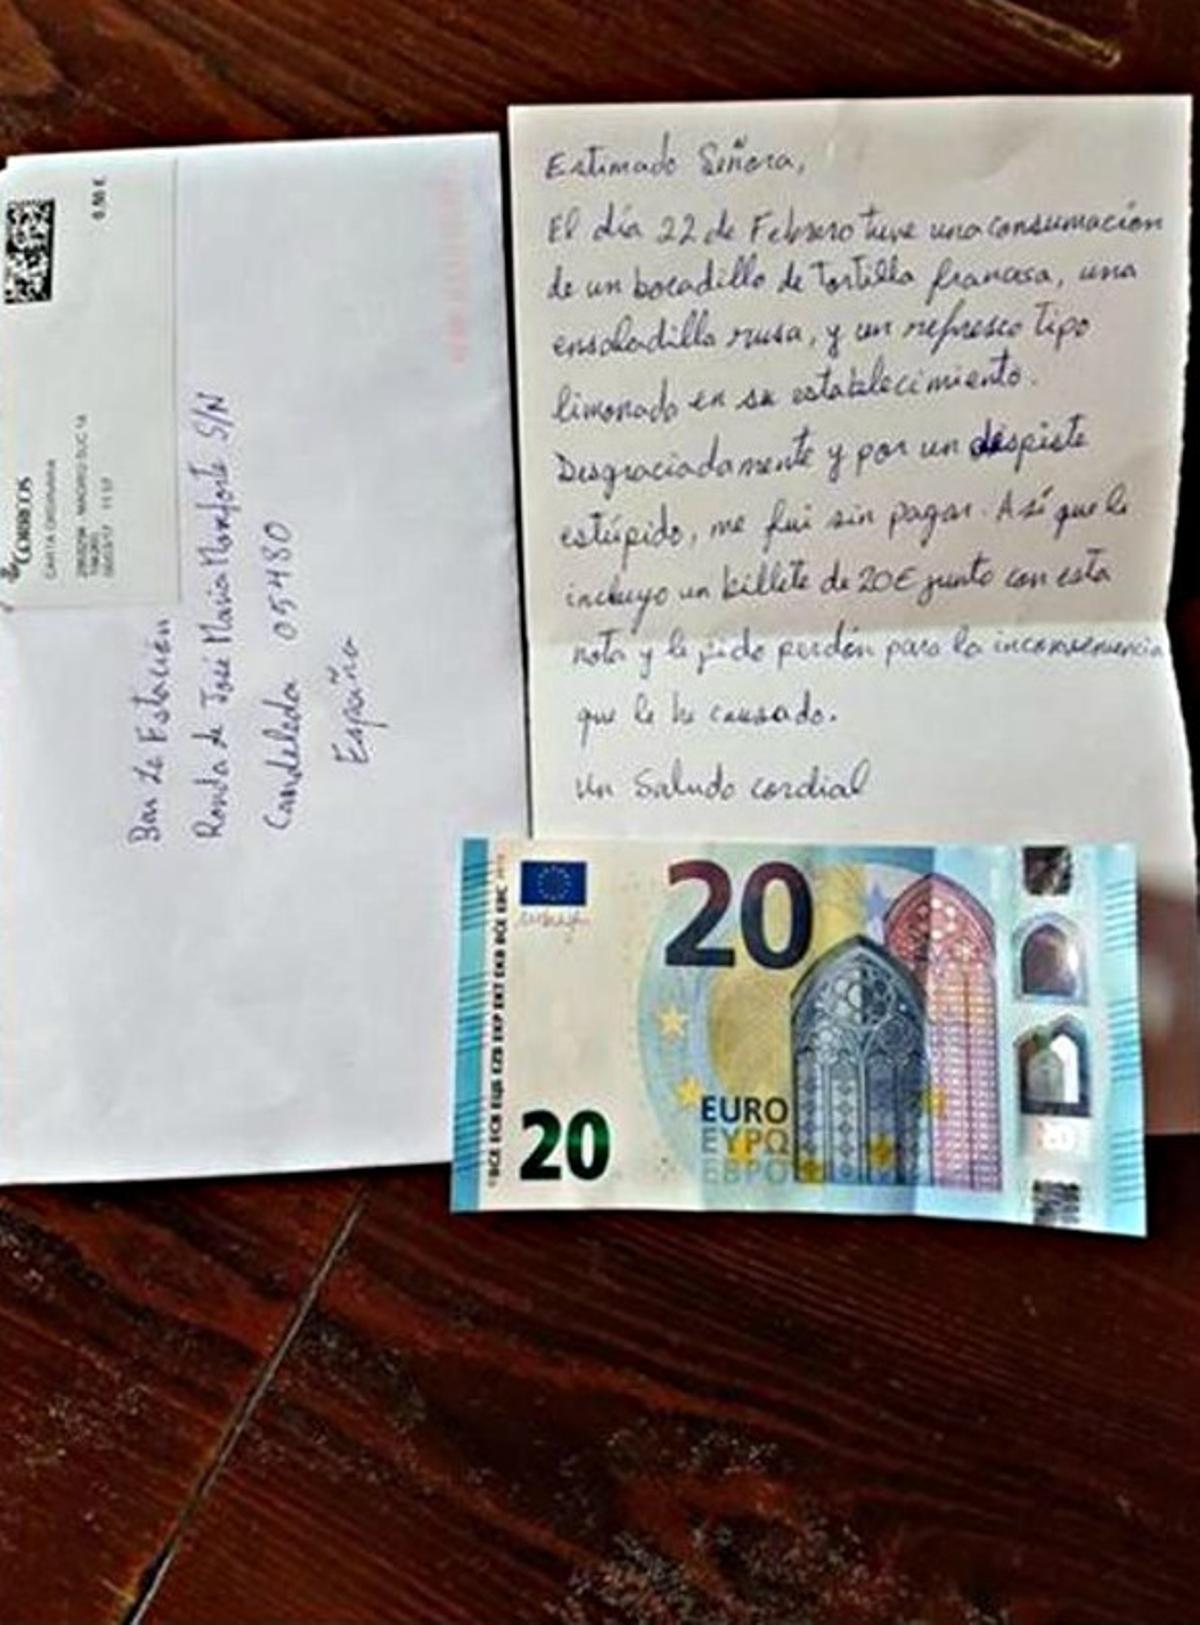 CORREOS
CARTA ORDINARIA
Bar La Estación
Ronda de José María Monforte S/N
Candeleda 05480
España
Estimado Señora,
El día 22 de Febrero tuve una consumación
de un bocadillo de tortilla francesa, una
ensaladilla rusa, y un refresco tipo
limonada en su establecimiento.
Desgraciadamente y por un despiste
estúpido, me fui sin pagar. Así que le
incluyo un billete de 20€ junto con esta
nota y le pido perdón para la inconveniencia
que le he causado.
Un Saludo cordial
20
BCE ECB EZB EKP EKT EKB BCE EBC
20
EURO
ΕΥΡΩ
ЕВРО